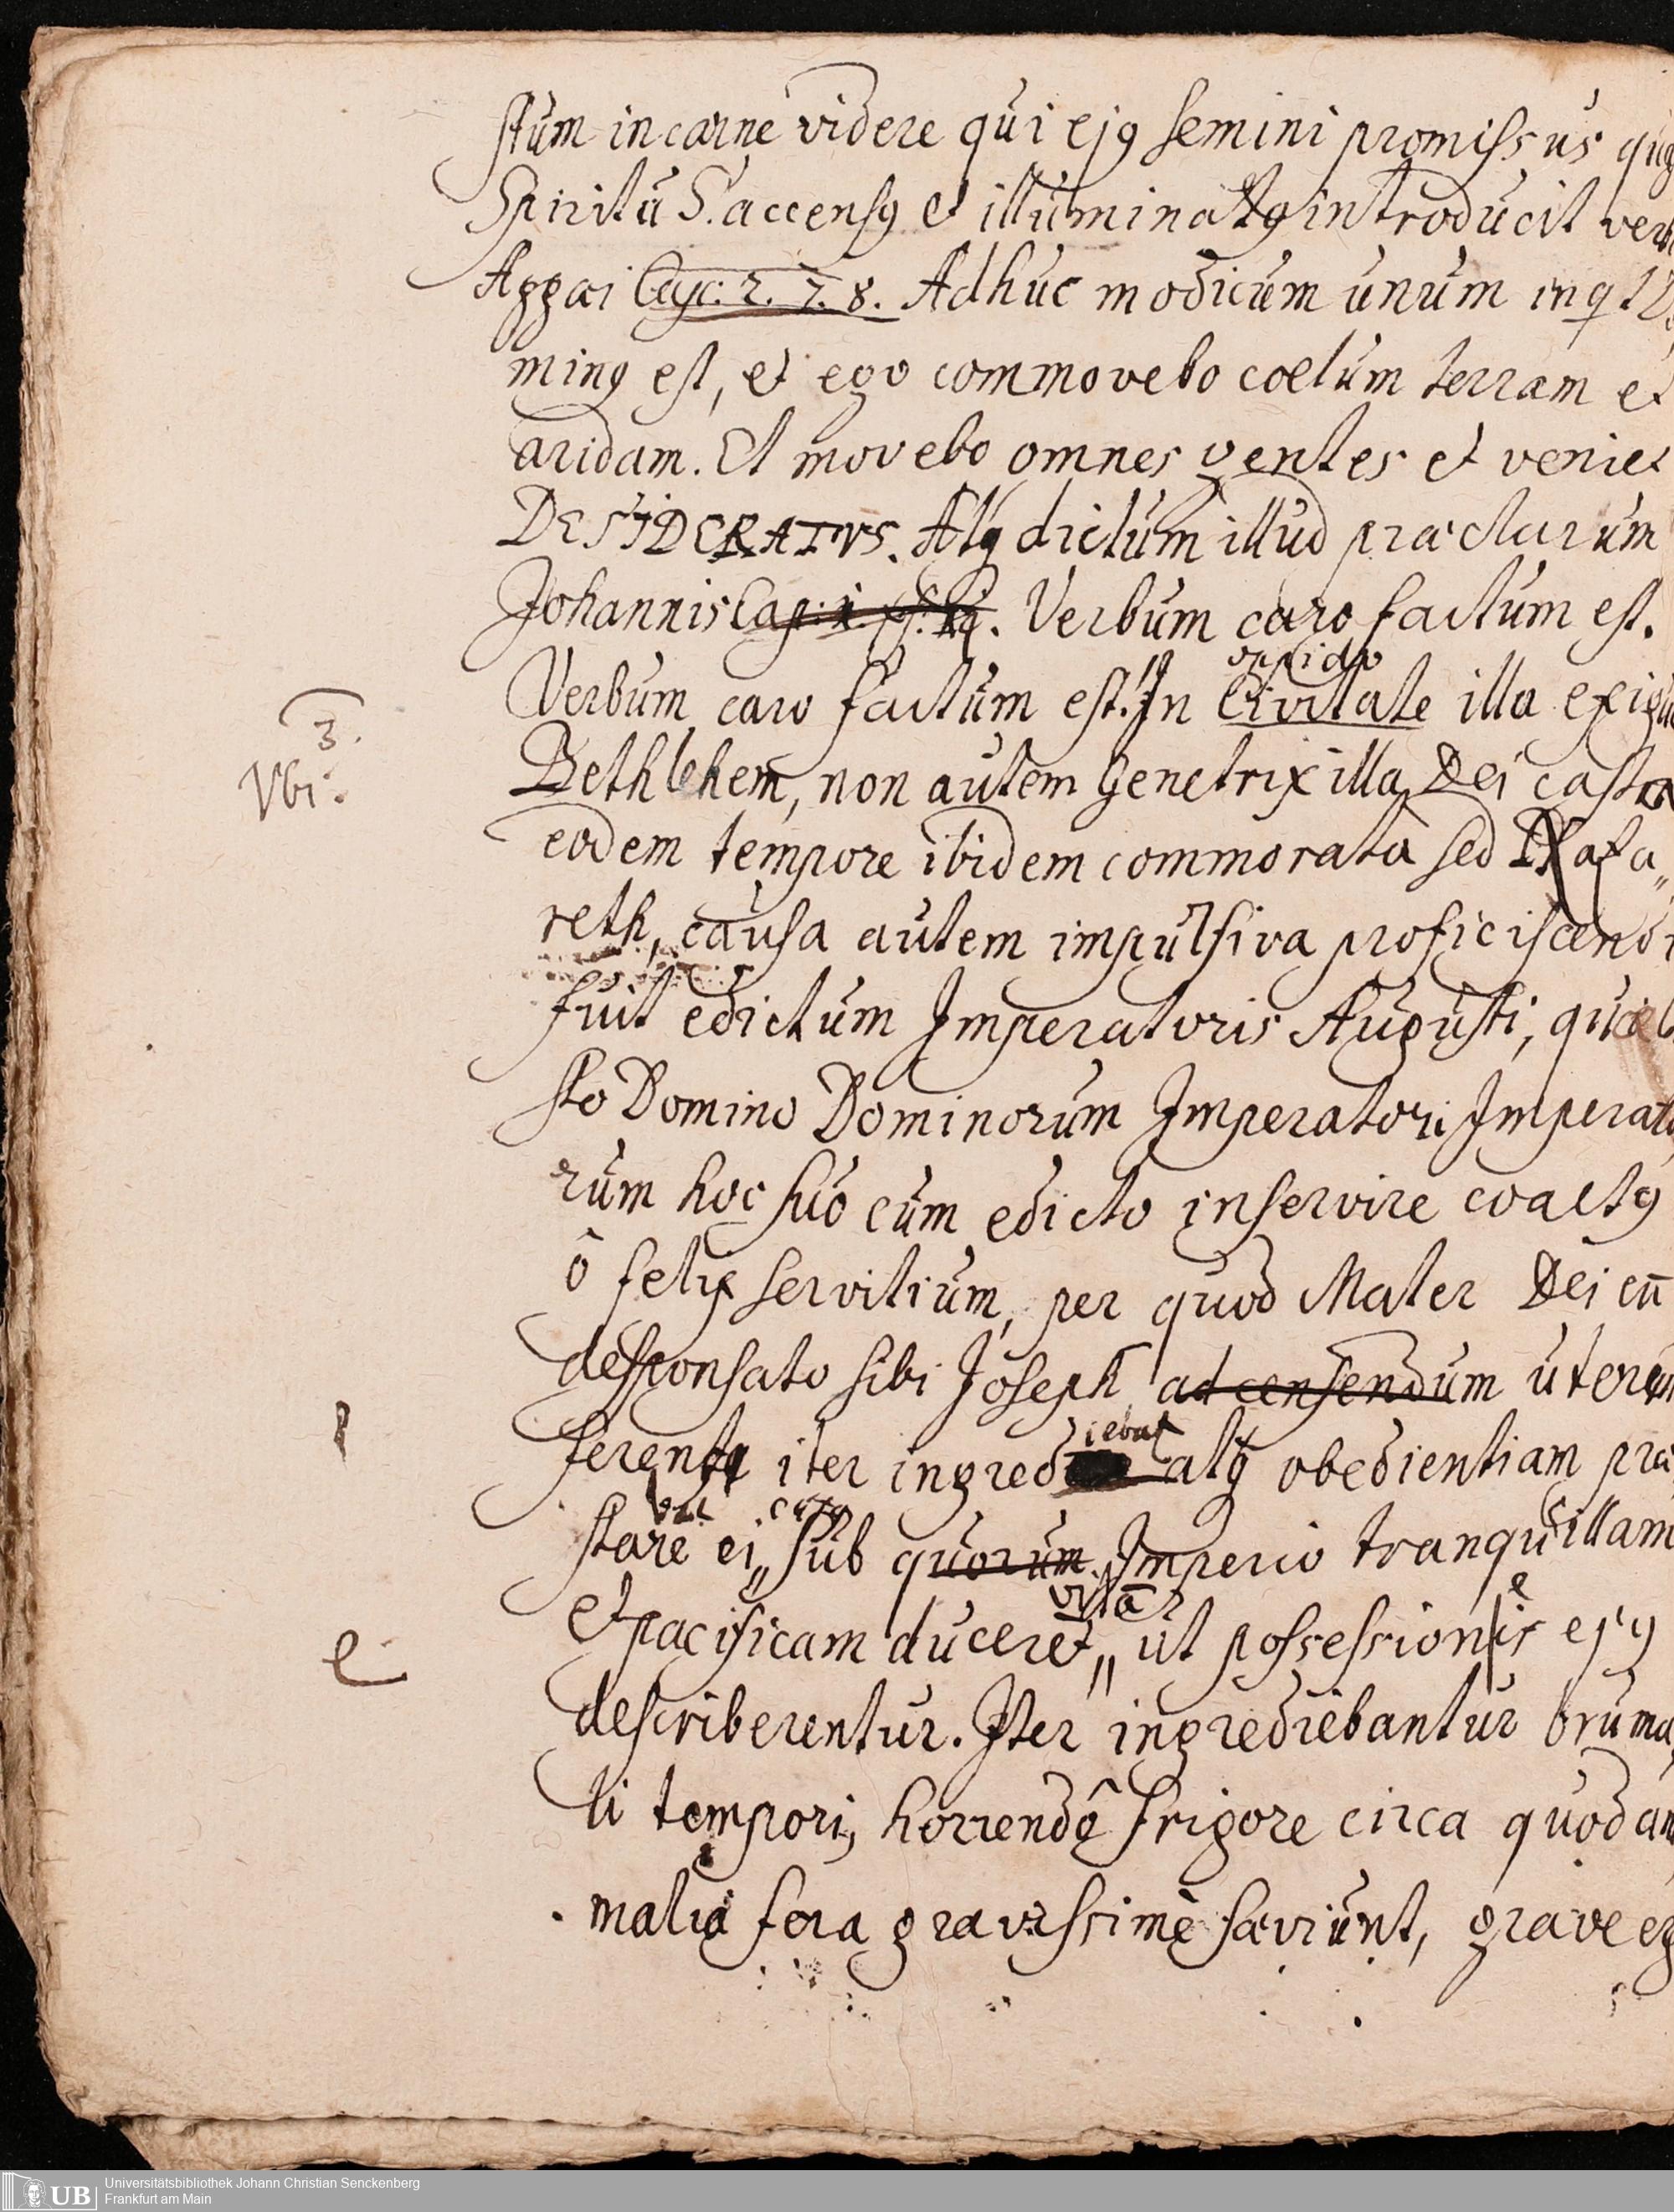 stum in carne videre qui ejꝯ semini promissus
Spiritu S. accensꝯ et illuminatꝯ introducit
Aggæi Cap. 2. 7. 8. Adhuc modicum unum
minꝯ est, et ego commovebo coelum terram et
aridam. Et movebo omnes gentes et veniet
DESIDERATVS. Atq dictum illud præclarum
Johannis Cap. 1. . Verbum caro factum est.
oppido
Verbum caro factum est. In Civitate illa exigu
3.
Vbi:
Bethlehem, non autem genetrix illa Dei casta
eodem tempore ibidem commorata sed Nasa„
reth, causa autem impulsiva proficiscendi
fuit edictum Imperatoris Augusti,
sto Domino Dominorum Imperatori Imperato
rum hoc suo cum edicto inservire coactꝯ
ô felix servitium, per quod Mater Dei
desponsato sibi Joseph ad censendum uterum
iebat
ferens iter ingred atq obedientiam præ
cujꝯ
stare ei„ sub quorum Imperio tranquillam
vitā
et pacificam duceret„ ut possessionis ejꝯ
e
describerentur. Iter ingrediebantur bruma
li tempori, horrendô frigore circa quod ani
malia fera gravissimè sæviunt, grave
Universitätsbibliothek Johann Christian Senckenberg
UB Frankfurt am Main